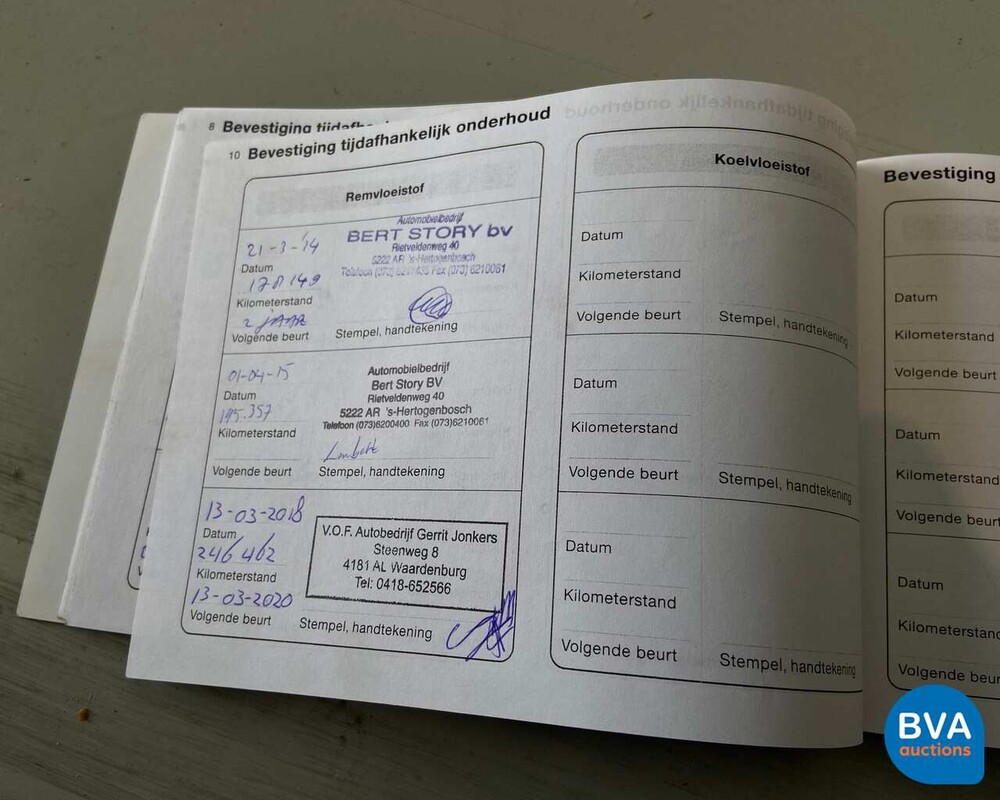 8 Bevestiging
10 Bevestiging tijdafhankelijk onderhoud
Remvloeistof
21-3-'14
Datum
178149
Kilometerstand
2 JAAR
Volgende beurt
Automobielbedrijf
BERT STORY bv
Rietveldenweg 40
5222 AR 's-Hertogenbosch
Telefoon (073) Fax (073) 6210061
Stempel, handtekening
01-04-15
Datum
195.357
Kilometerstand
Volgende beurt
Automobielbedrijf
Bert Story BV
Rietveldenweg 40
5222 AR 's-Hertogenbosch
Telefoon (073)6200400 Fax (073)6210061
Stempel, handtekening
13-03-2018
Datum
246462
Kilometerstand
13-03-2020
Volgende beurt
V.O.F. Autobedrijf Gerrit Jonkers
Steenweg 8
4181 AL Waardenburg
Tel: 0418-652566
Stempel, handtekening
Koelvloeistof
Datum
Kilometerstand
Volgende beurt Stempel, handtekening
Datum
Kilometerstand
Volgende beurt Stempel, handtekening
Datum
Kilometerstand
Volgende beurt Stempel, handtekening
Bevestiging
Datum
Kilometerstand
Volgende beurt
Datum
Kilometerstand
Volgende beurt
Datum
Kilometerstand
Volgende beurt
BVA
auctions